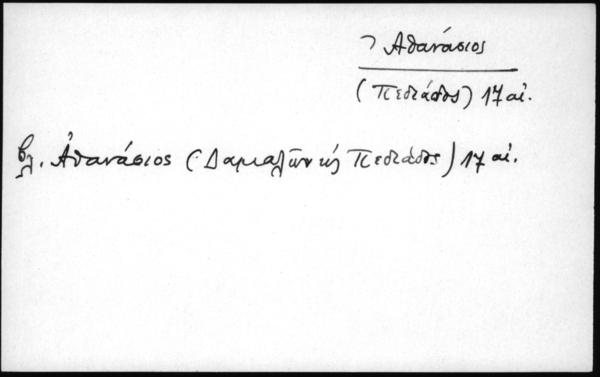 Ἀθανάσιος
(Πεδιάδος) 17 αἰ.
βλ. Ἀθανάσιος (Δαμαλῶν καὶ Πεδιάδος) 17 αἰ.